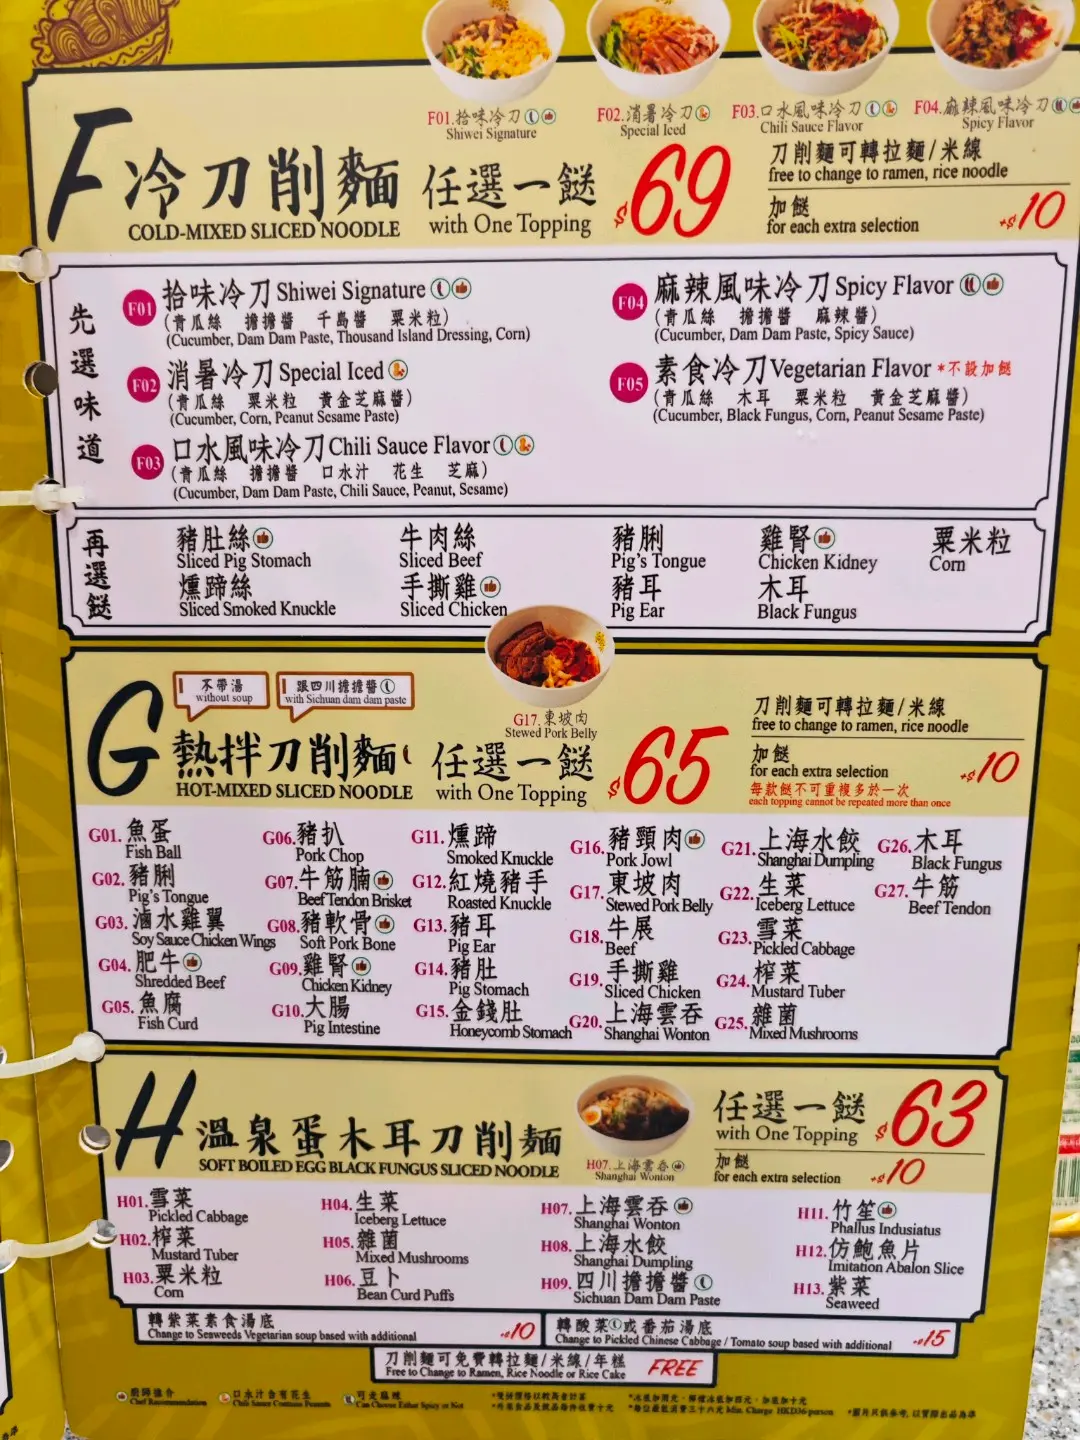 F01.拾味冷刀
Shiwei Signature
F02.消暑冷刀
Special Iced
F03.口水風味冷刀
Chili Sauce Flavor
F04.麻辣風味冷刀
Spicy Flavor
F 冷刀削麵 任選一餸 $69
COLD-MIXED SLICED NOODLE with One Topping
刀削麵可轉拉麵/米線
free to change to ramen, rice noodle
加餸
for each extra selection +$10
先選味道
F01 拾味冷刀 Shiwei Signature
(青瓜絲 擔擔醬 千島醬 粟米粒)
(Cucumber, Dam Dam Paste, Thousand Island Dressing, Corn)
F02 消暑冷刀 Special Iced
(青瓜絲 粟米粒 黃金芝麻醬)
(Cucumber, Corn, Peanut Sesame Paste)
F03 口水風味冷刀 Chili Sauce Flavor
(青瓜絲 擔擔醬 口水汁 花生 芝麻)
(Cucumber, Dam Dam Paste, Chili Sauce, Peanut, Sesame)
F04 麻辣風味冷刀 Spicy Flavor
(青瓜絲 擔擔醬 麻辣醬)
(Cucumber, Dam Dam Paste, Spicy Sauce)
F05 素食冷刀 Vegetarian Flavor *不設加餸
(青瓜絲 木耳 粟米粒 黃金芝麻醬)
(Cucumber, Black Fungus, Corn, Peanut Sesame Paste)
再選餸
豬肚絲
Sliced Pig Stomach
燻蹄絲
Sliced Smoked Knuckle
牛肉絲
Sliced Beef
手撕雞
Sliced Chicken
豬脷
Pig's Tongue
豬耳
Pig Ear
雞腎
Chicken Kidney
木耳
Black Fungus
粟米粒
Corn
不帶湯
without soup
跟四川擔擔醬
with Sichuan dam dam paste
G17.東坡肉
Stewed Pork Belly
G 熱拌刀削麵 任選一餸 $65
HOT-MIXED SLICED NOODLE with One Topping
刀削麵可轉拉麵/米線
free to change to ramen, rice noodle
加餸
for each extra selection +$10
每款餸不可重複多於一次
each topping cannot be repeated more than once
G01.魚蛋
Fish Ball
G02.豬脷
Pig's Tongue
G03.滷水雞翼
Soy Sauce Chicken Wings
G04.肥牛
Shredded Beef
G05.魚腐
Fish Curd
G06.豬扒
Pork Chop
G07.牛筋腩
Beef Tendon Brisket
G08.豬軟骨
Soft Pork Bone
G09.雞腎
Chicken Kidney
G10.大腸
Pig Intestine
G11.燻蹄
Smoked Knuckle
G12.紅燒豬手
Roasted Knuckle
G13.豬耳
Pig Ear
G14.豬肚
Pig Stomach
G15.金錢肚
Honeycomb Stomach
G16.豬頸肉
Pork Jowl
G17.東坡肉
Stewed Pork Belly
G18.牛展
Beef
G19.手撕雞
Sliced Chicken
G20.上海雲吞
Shanghai Wonton
G21.上海水餃
Shanghai Dumpling
G22.生菜
Iceberg Lettuce
G23.雪菜
Pickled Cabbage
G24.榨菜
Mustard Tuber
G25.雜菌
Mixed Mushrooms
G26.木耳
Black Fungus
G27.牛筋
Beef Tendon
H 溫泉蛋木耳刀削麵
SOFT BOILED EGG BLACK FUNGUS SLICED NOODLE
H07.上海雲吞
Shanghai Wonton
任選一餸 $63
with One Topping
加餸
for each extra selection +$10
H01.雪菜
Pickled Cabbage
H02.榨菜
Mustard Tuber
H03.粟米粒
Corn
H04.生菜
Iceberg Lettuce
H05.雜菌
Mixed Mushrooms
H06.豆卜
Bean Curd Puffs
H07.上海雲吞
Shanghai Wonton
H08.上海水餃
Shanghai Dumpling
H09.四川擔擔醬
Sichuan Dam Dam Paste
H11.竹笙
Phallus Indusiatus
H12.仿鮑魚片
Imitation Abalon Slice
H13.紫菜
Seaweed
轉紫菜素食湯底
Change to Seaweeds Vegetarian soup based with additional +$10
轉酸菜或番茄湯底
Change to Pickled Chinese Cabbage / Tomato soup based with additional +$15
刀削麵可免費轉拉麵/米線/年糕
Free to Change to Ramen, Rice Noodle or Rice Cake FREE
廚師推介
Chef Recommendation
口水汁含有花生
Chili Sauce Contains Peanuts
可走麻辣
Can Choose Either Spicy or Not
Min. Charge HKD36/person